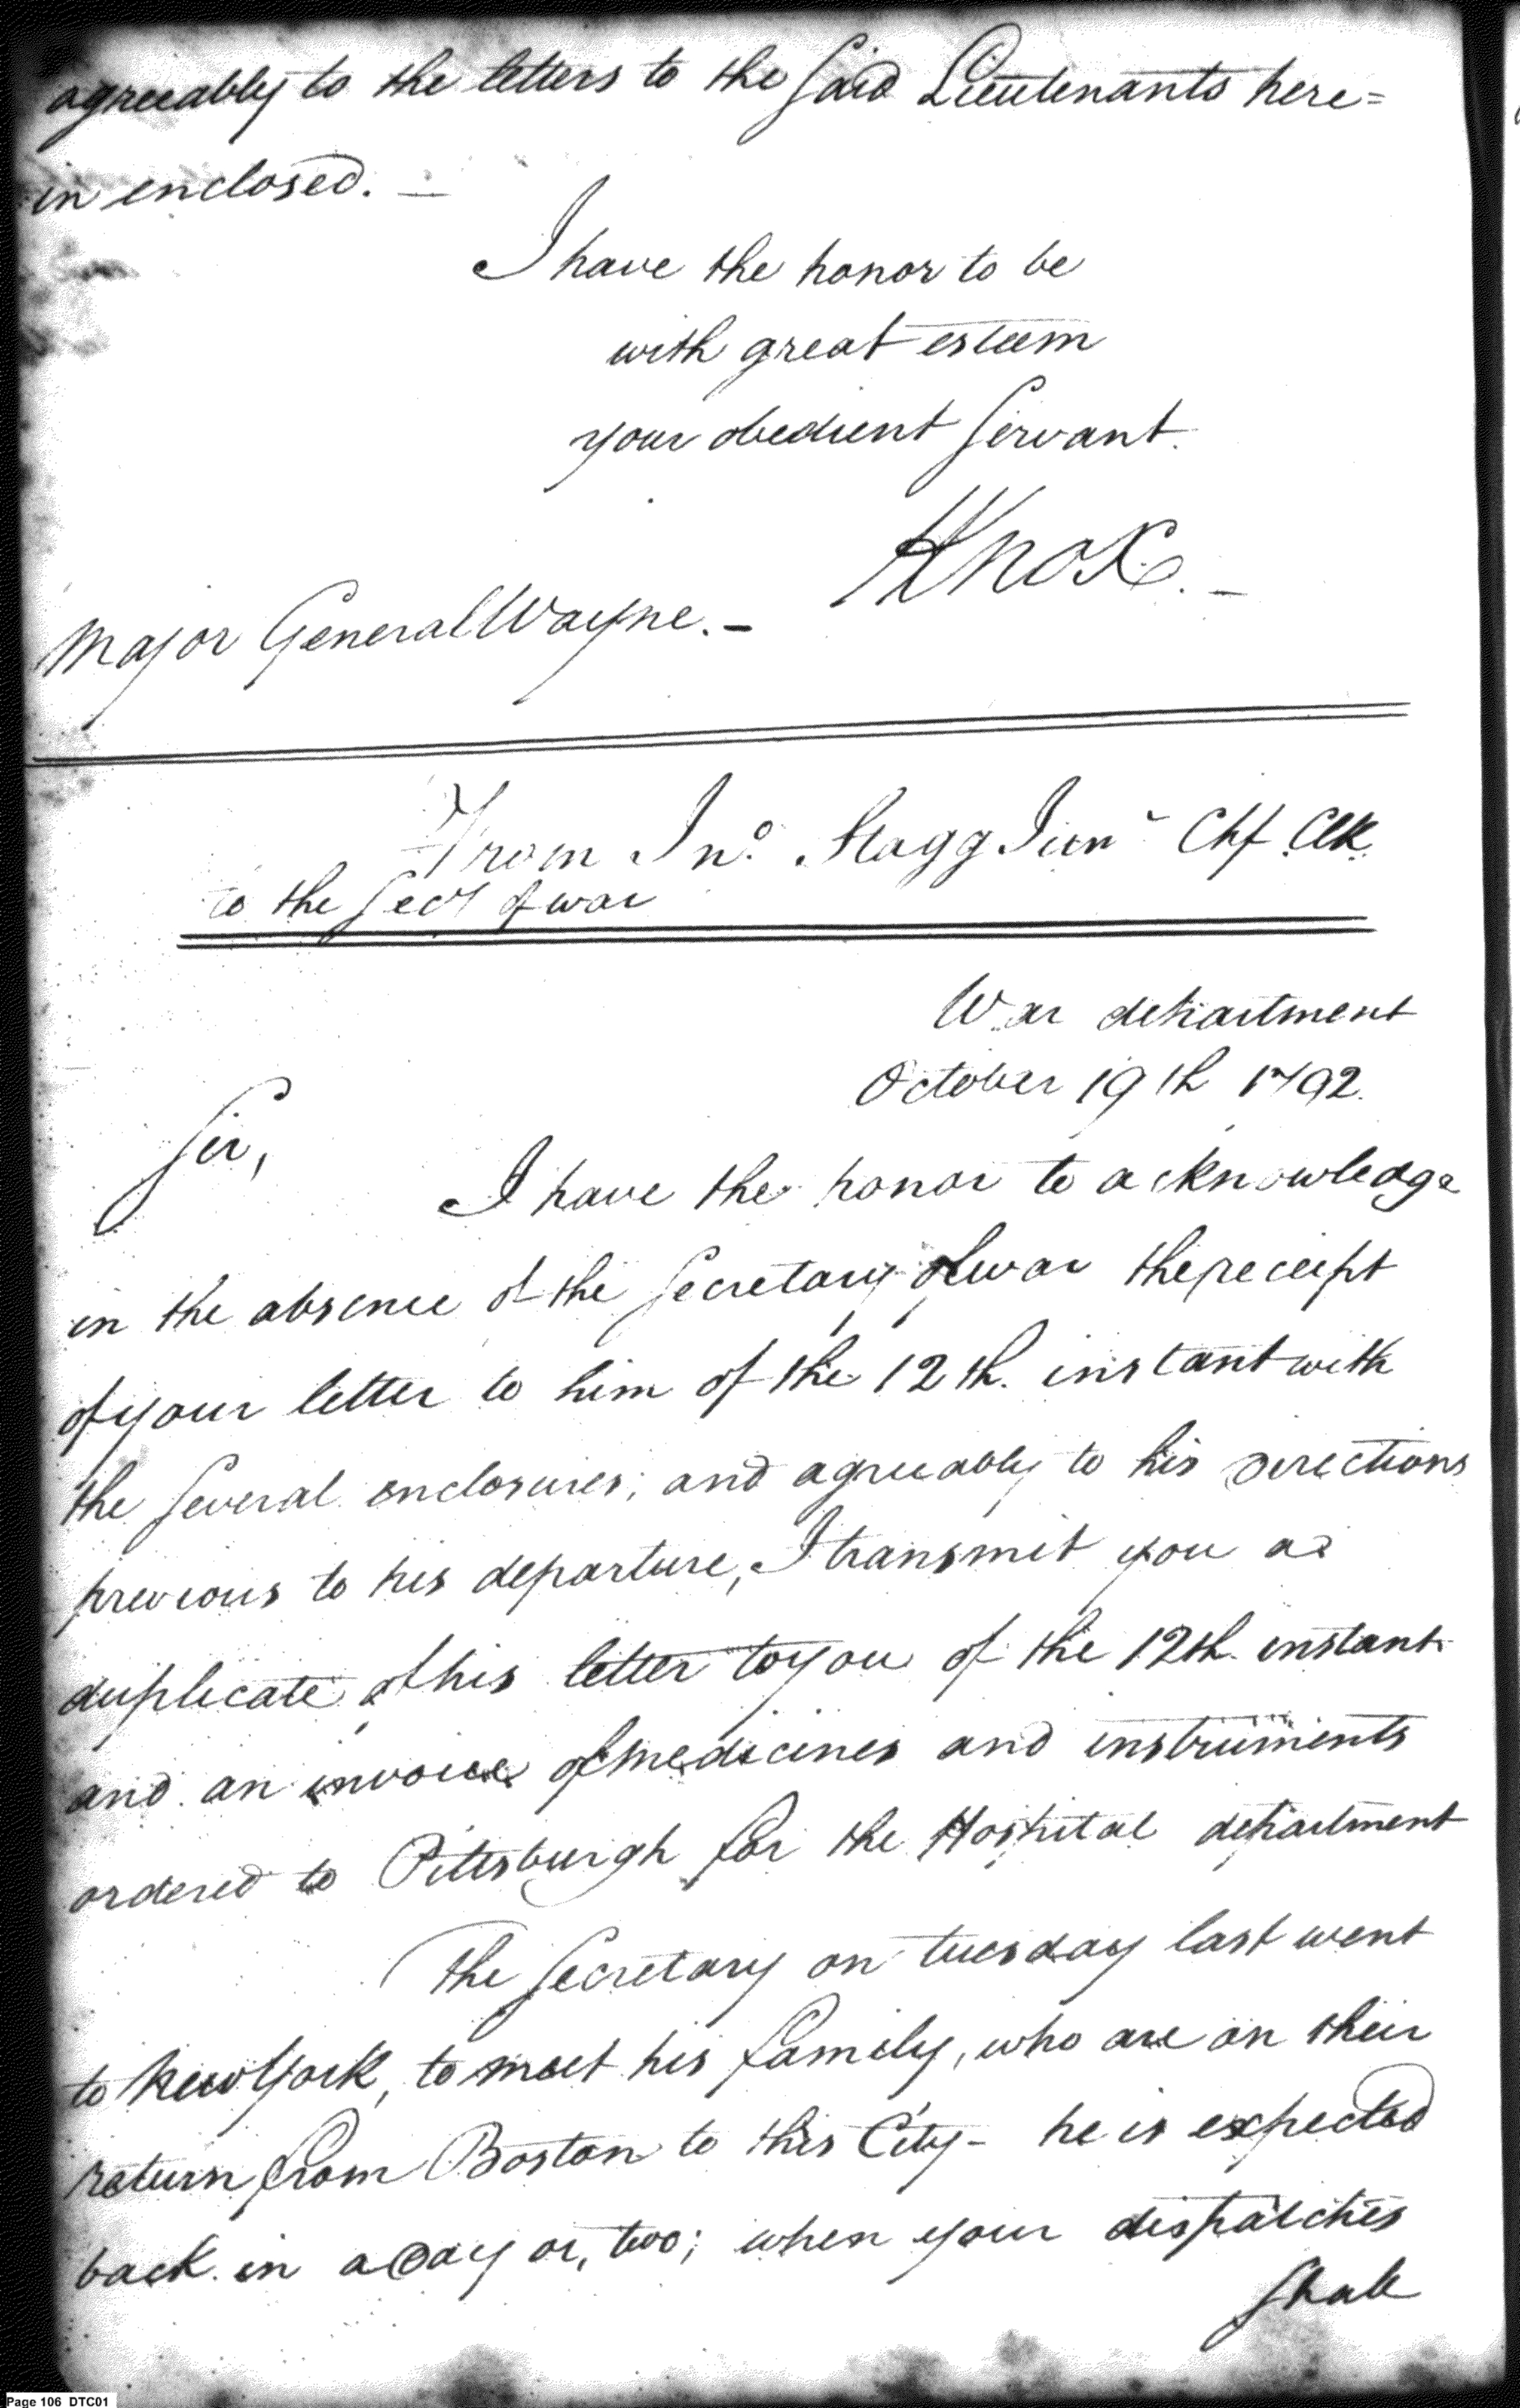 agreeably to the letters to the said Lieutenants here=
in enclosed. —
I have the honor to be
with great esteem
your obedient servant.
HKnox. –
Major General Wayne. –
From Jno. Stagg Junr Chf Clk
to the Secy of war
War department
October 19th 1792.
Sir,
I have the honor to acknowledge
in the absence of the Secretary of war the receipt
of your letter to him of the 12th. instant with
the several enclosures; and agreeably to his directions
previous to his departure, I transmit you a
duplicate of his letter to you of the 12th. instant
and an invoice of medicines and instruments
ordered to Pittsburgh for the Hospital department
The Secretary on tuesday last went
to New York, to meet his family, who are on their
return from Boston to this City – he is expected
back in a day or, two; when your dispatches
shall
Page 106 DTC01